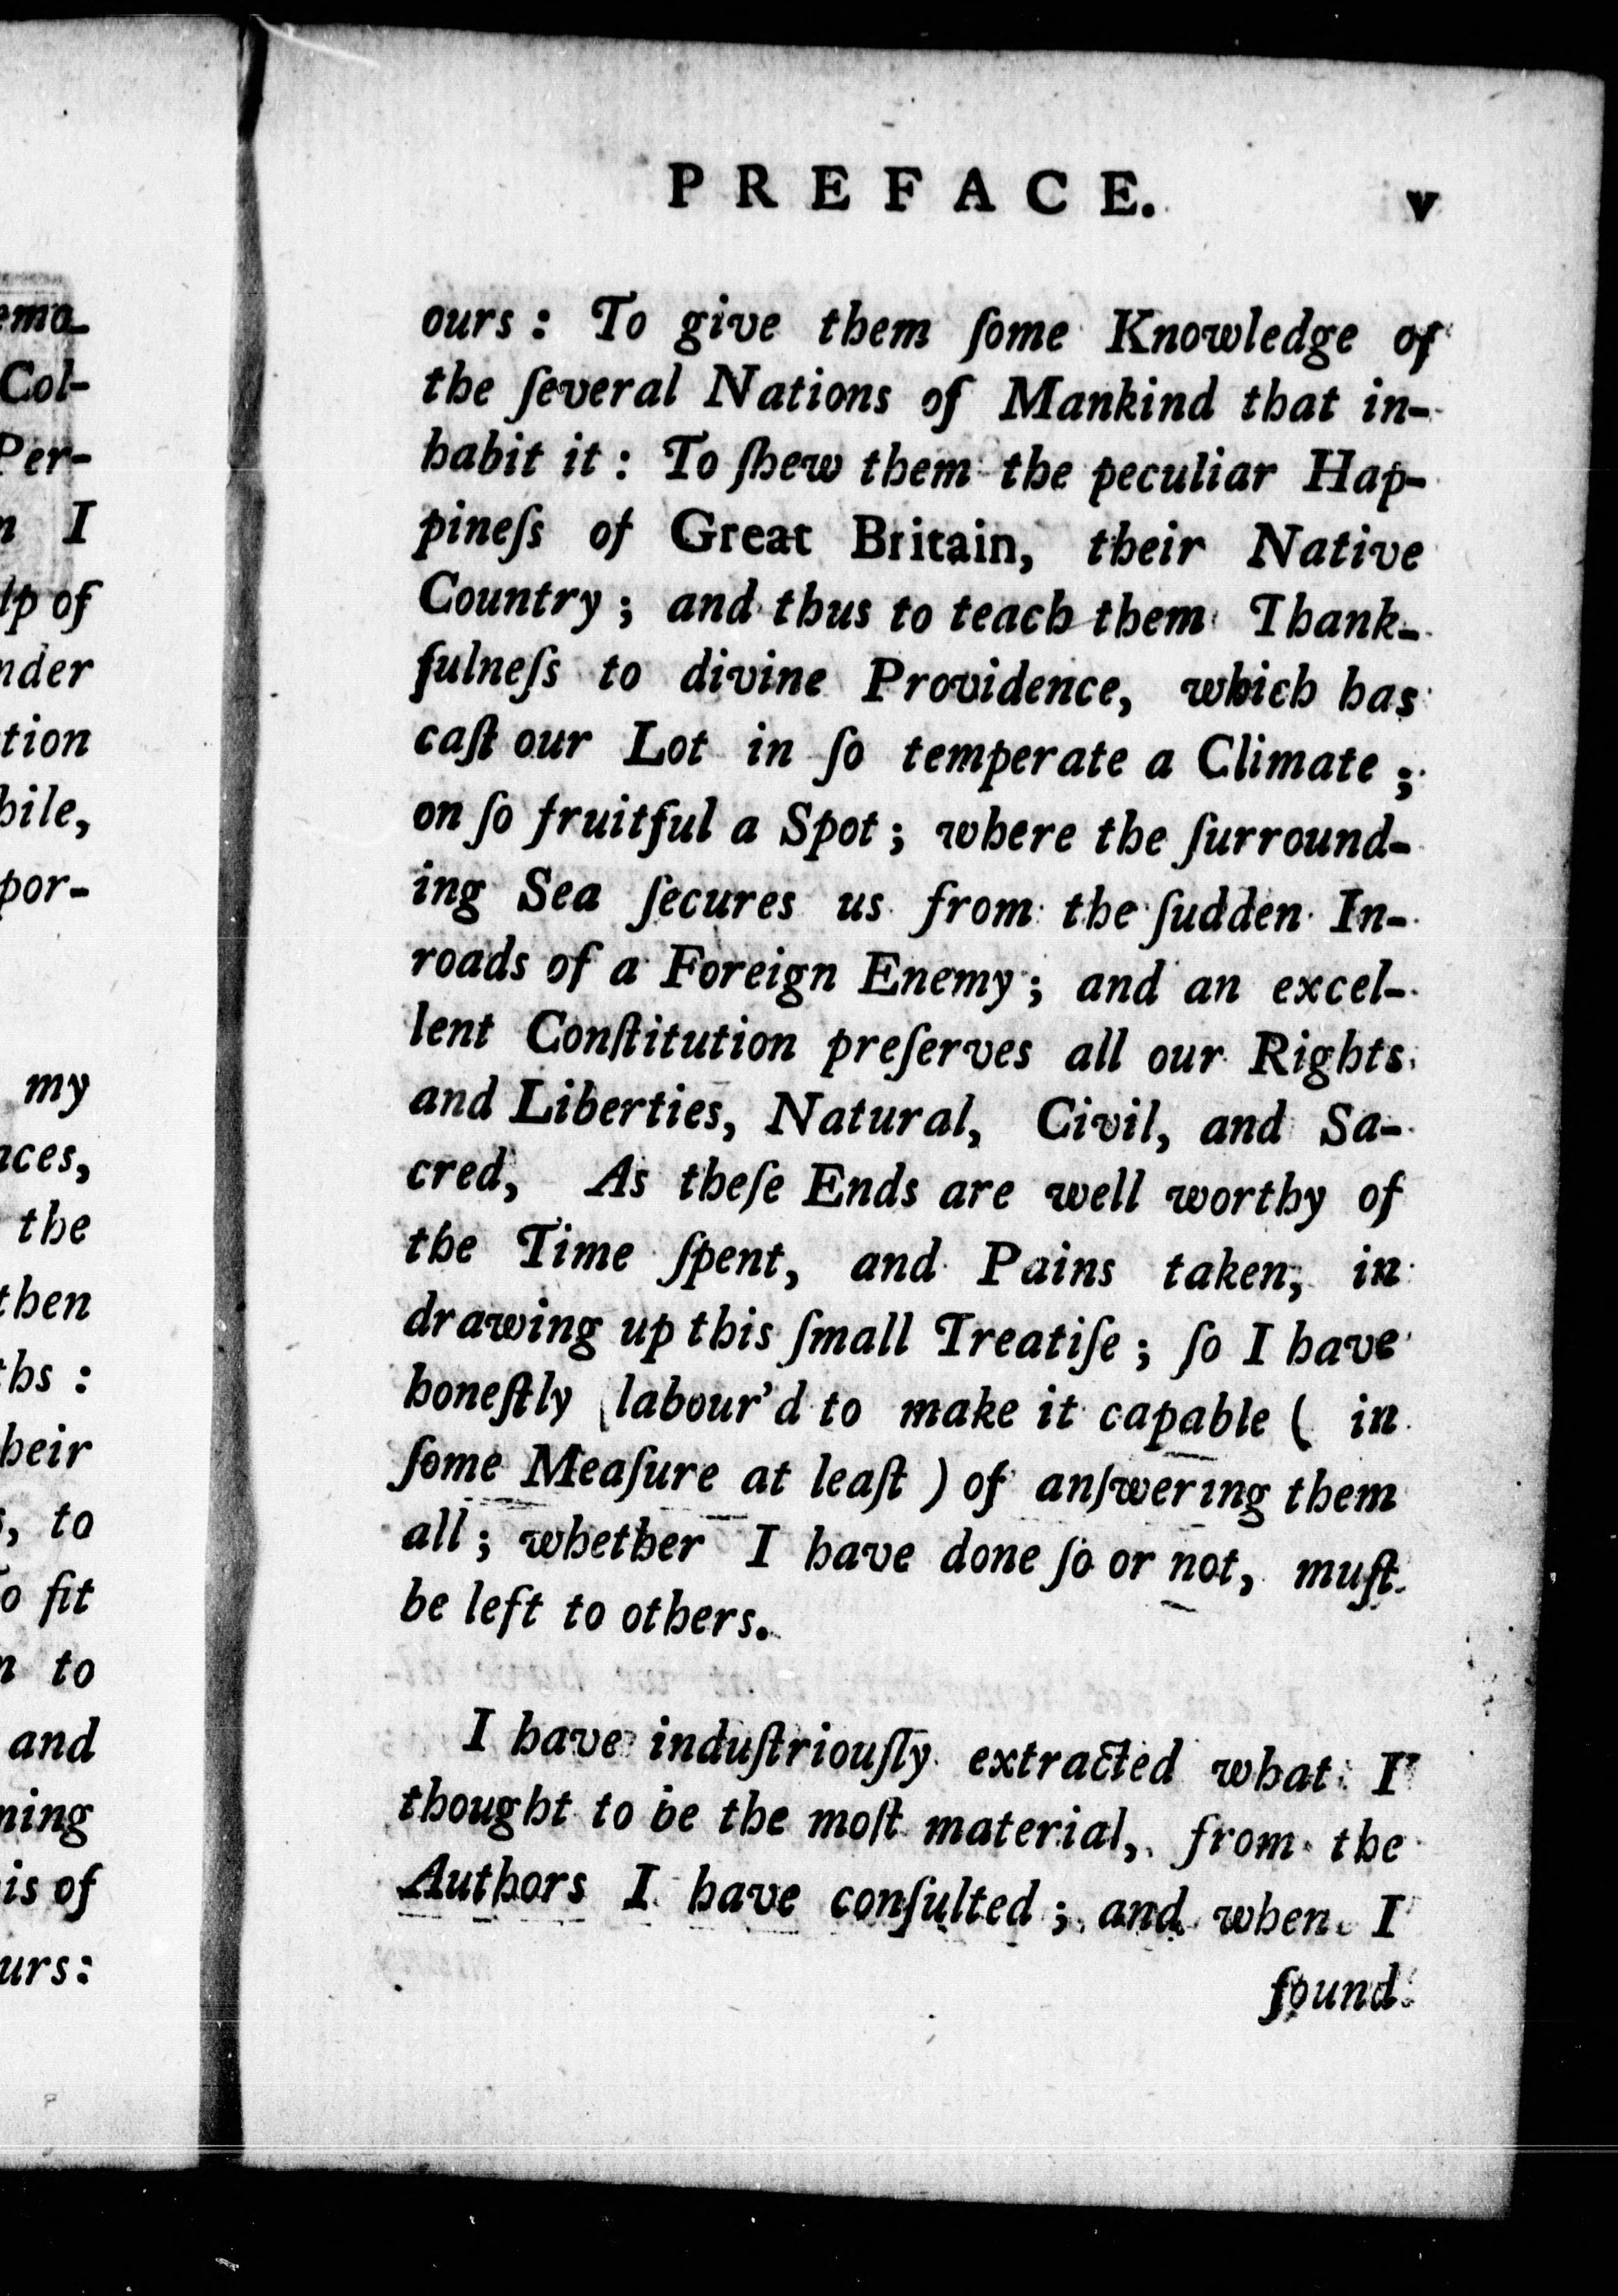 PREFACE. v
ours: To give them ſome Knowledge of
the ſeveral Nations of Mankind that in-
habit it: To ſhew them the peculiar Hap-
pineſs of Great Britain, their Native
Country; and thus to teach them Thank-
fulneſs to divine Providence, which has
caſt our Lot in ſo temperate a Climate;
on ſo fruitful a Spot; where the ſurround-
ing Sea ſecures us from the ſudden In-
roads of a Foreign Enemy; and an excel-
lent Conſtitution preſerves all our Rights
and Liberties, Natural, Civil, and Sa-
cred, As theſe Ends are well worthy of
the Time ſpent, and Pains taken, in
drawing up this ſmall Treatiſe; ſo I have
honeſtly labour'd to make it capable (in
ſome Meaſure at leaſt) of anſwering them
all; whether I have done ſo or not, muſt
be left to others.
I have induſtriouſly extracted what I
thought to be the moſt material, from the
Authors I have conſulted; and when I
found